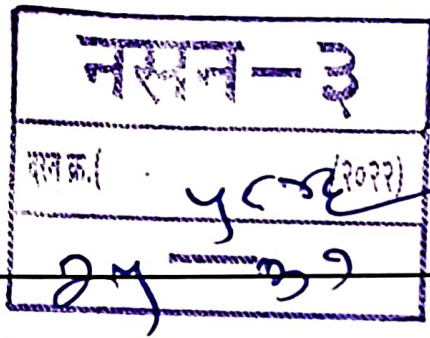 नसन-३
दस्त क्र.( (२०२२)
२५ — ३१